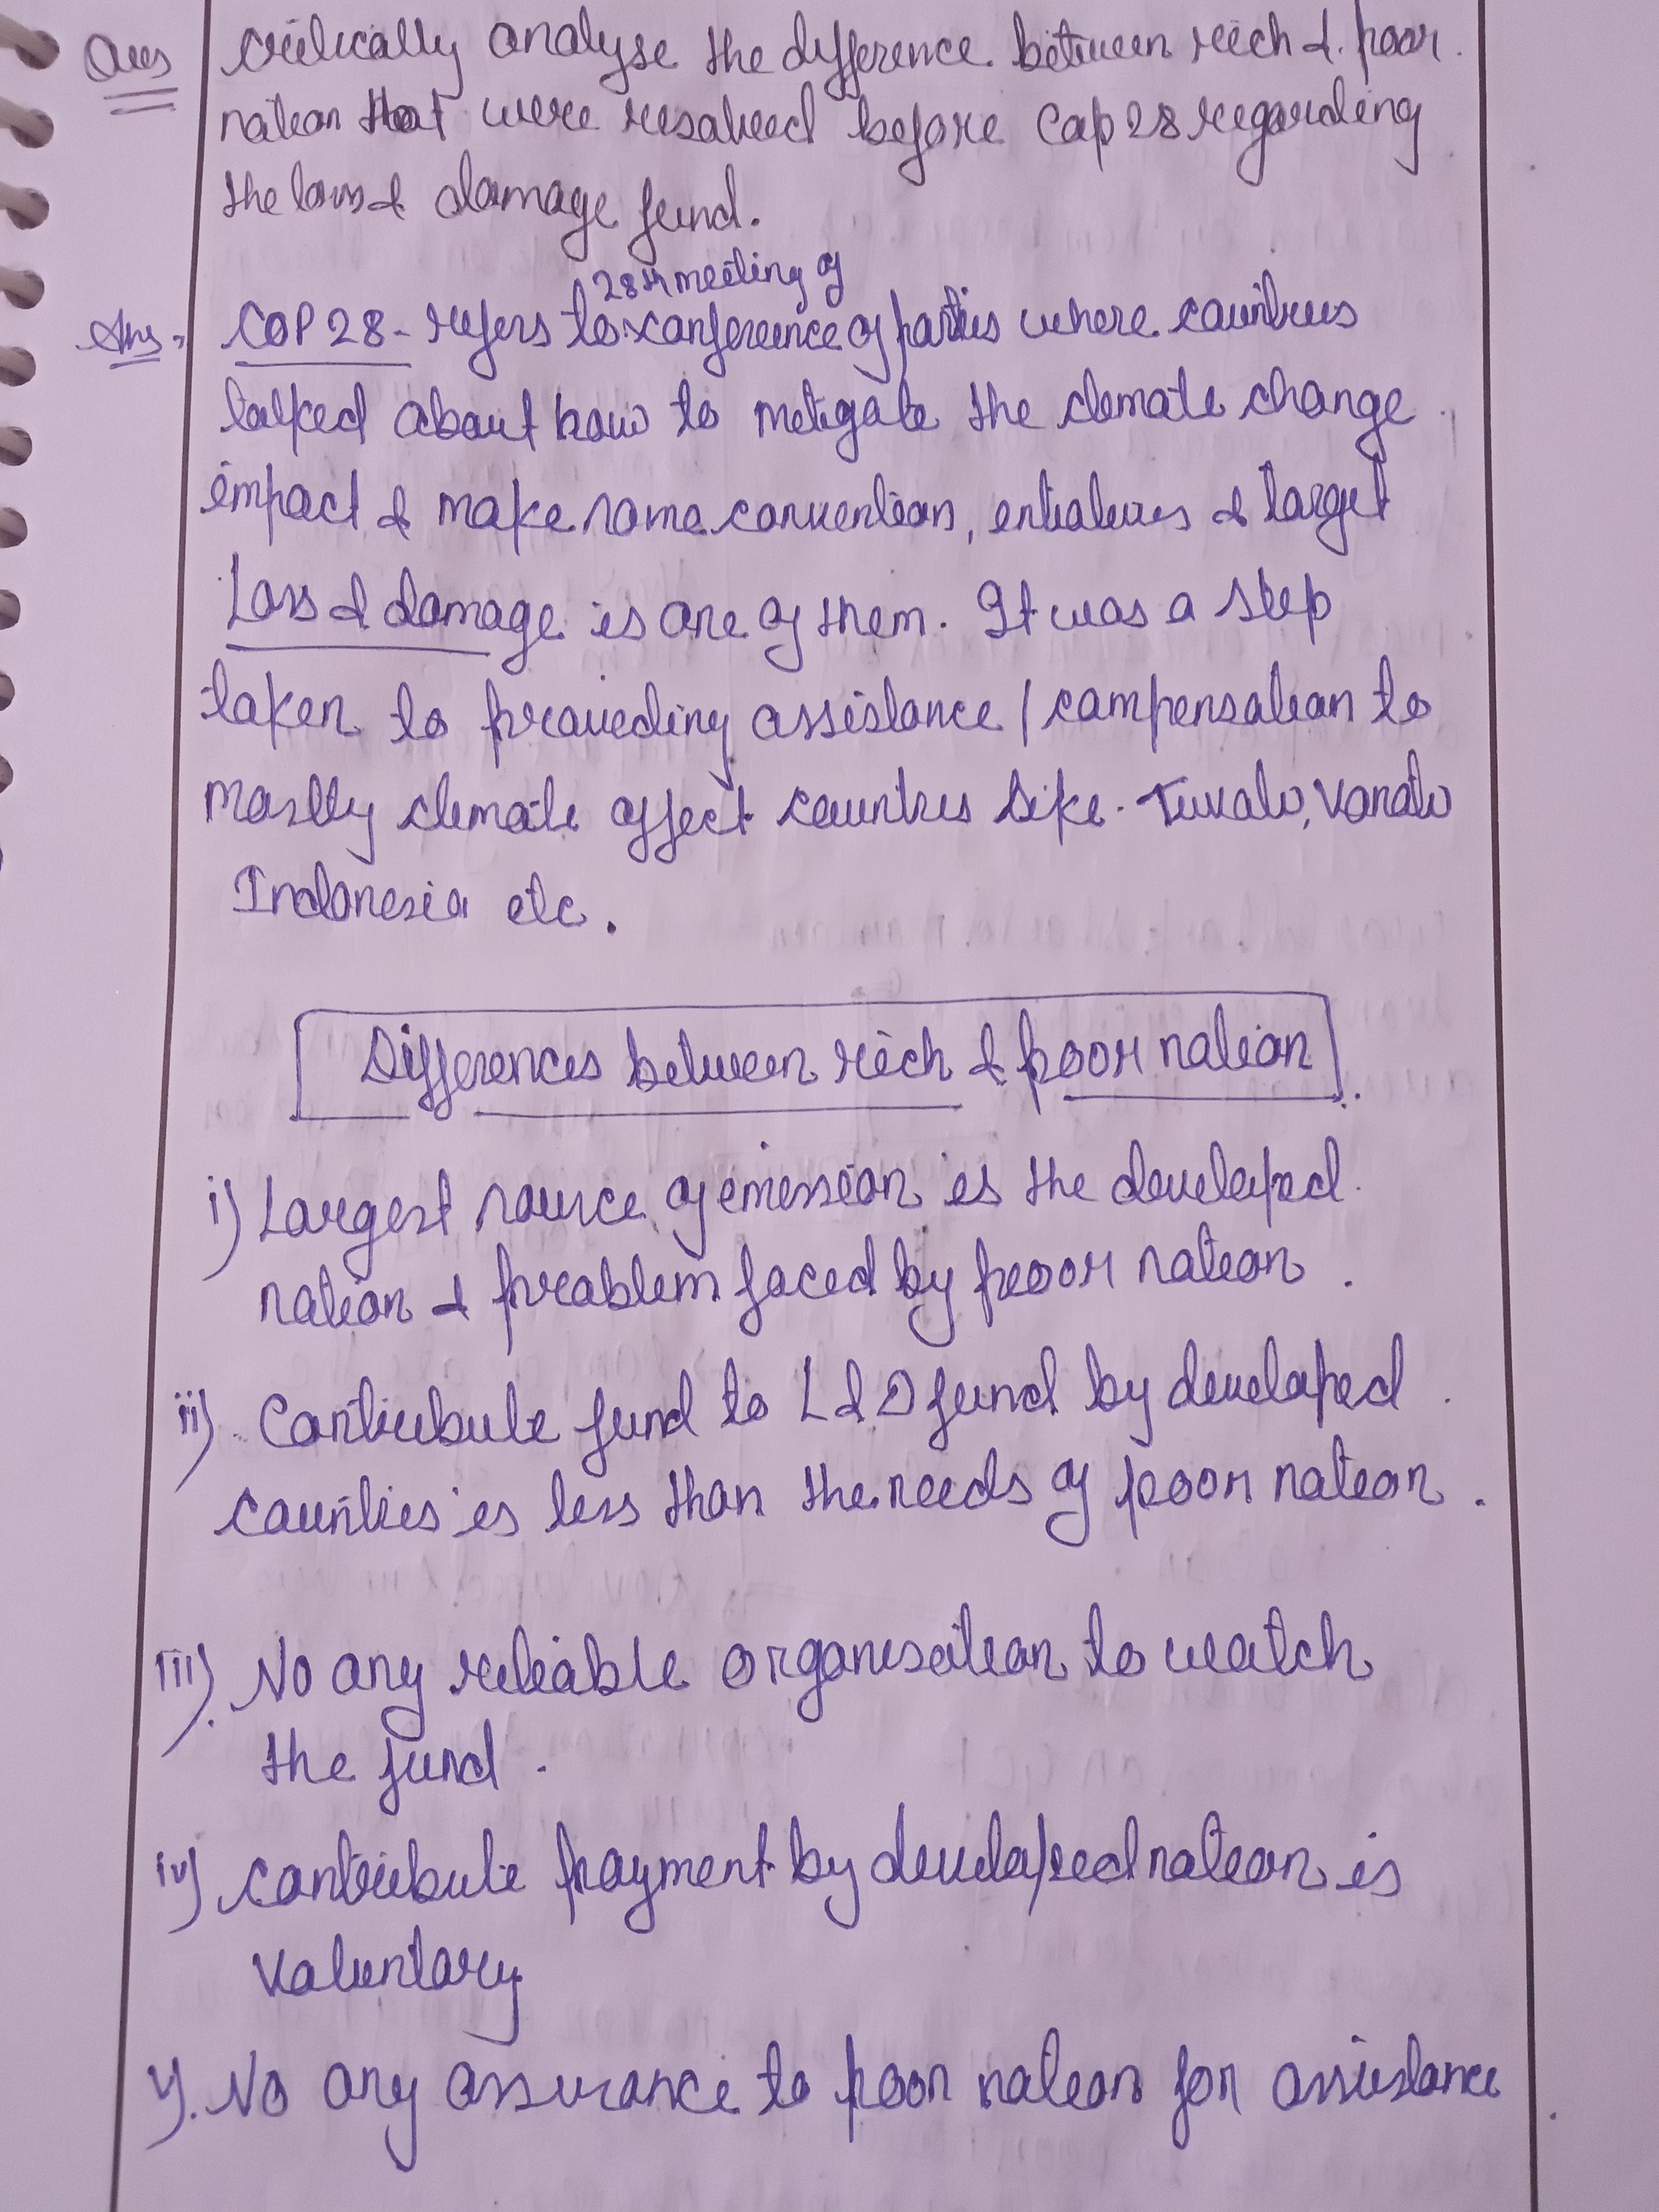 Ques critically analyse the difference between rich & poor
nation that were resolved before Cop 28 regarding
the loss & damage fund.
28th meeting of
Ans - COP 28 - refers to conference of parties where countries
talked about how to mitigate the climate change
impact & make some convention, intiatives & target
Loss & damage is one of them. It was a step
taken to providing assistance / compensation to
mostly climate affect countries like - Tuvalu, Vanatu
Indonesia etc.
Differences between rich & poor nation
i) Largest source of emission is the developed
nation & problem faced by poor nation.
ii) Contribute fund to L & D fund by developed
counties is less than the needs of poor nation.
iii) No any reliable organisation to watch
the fund.
iv) contribute payment by developed nation is
voluntary
v). No any assurance to poor nation for assistance